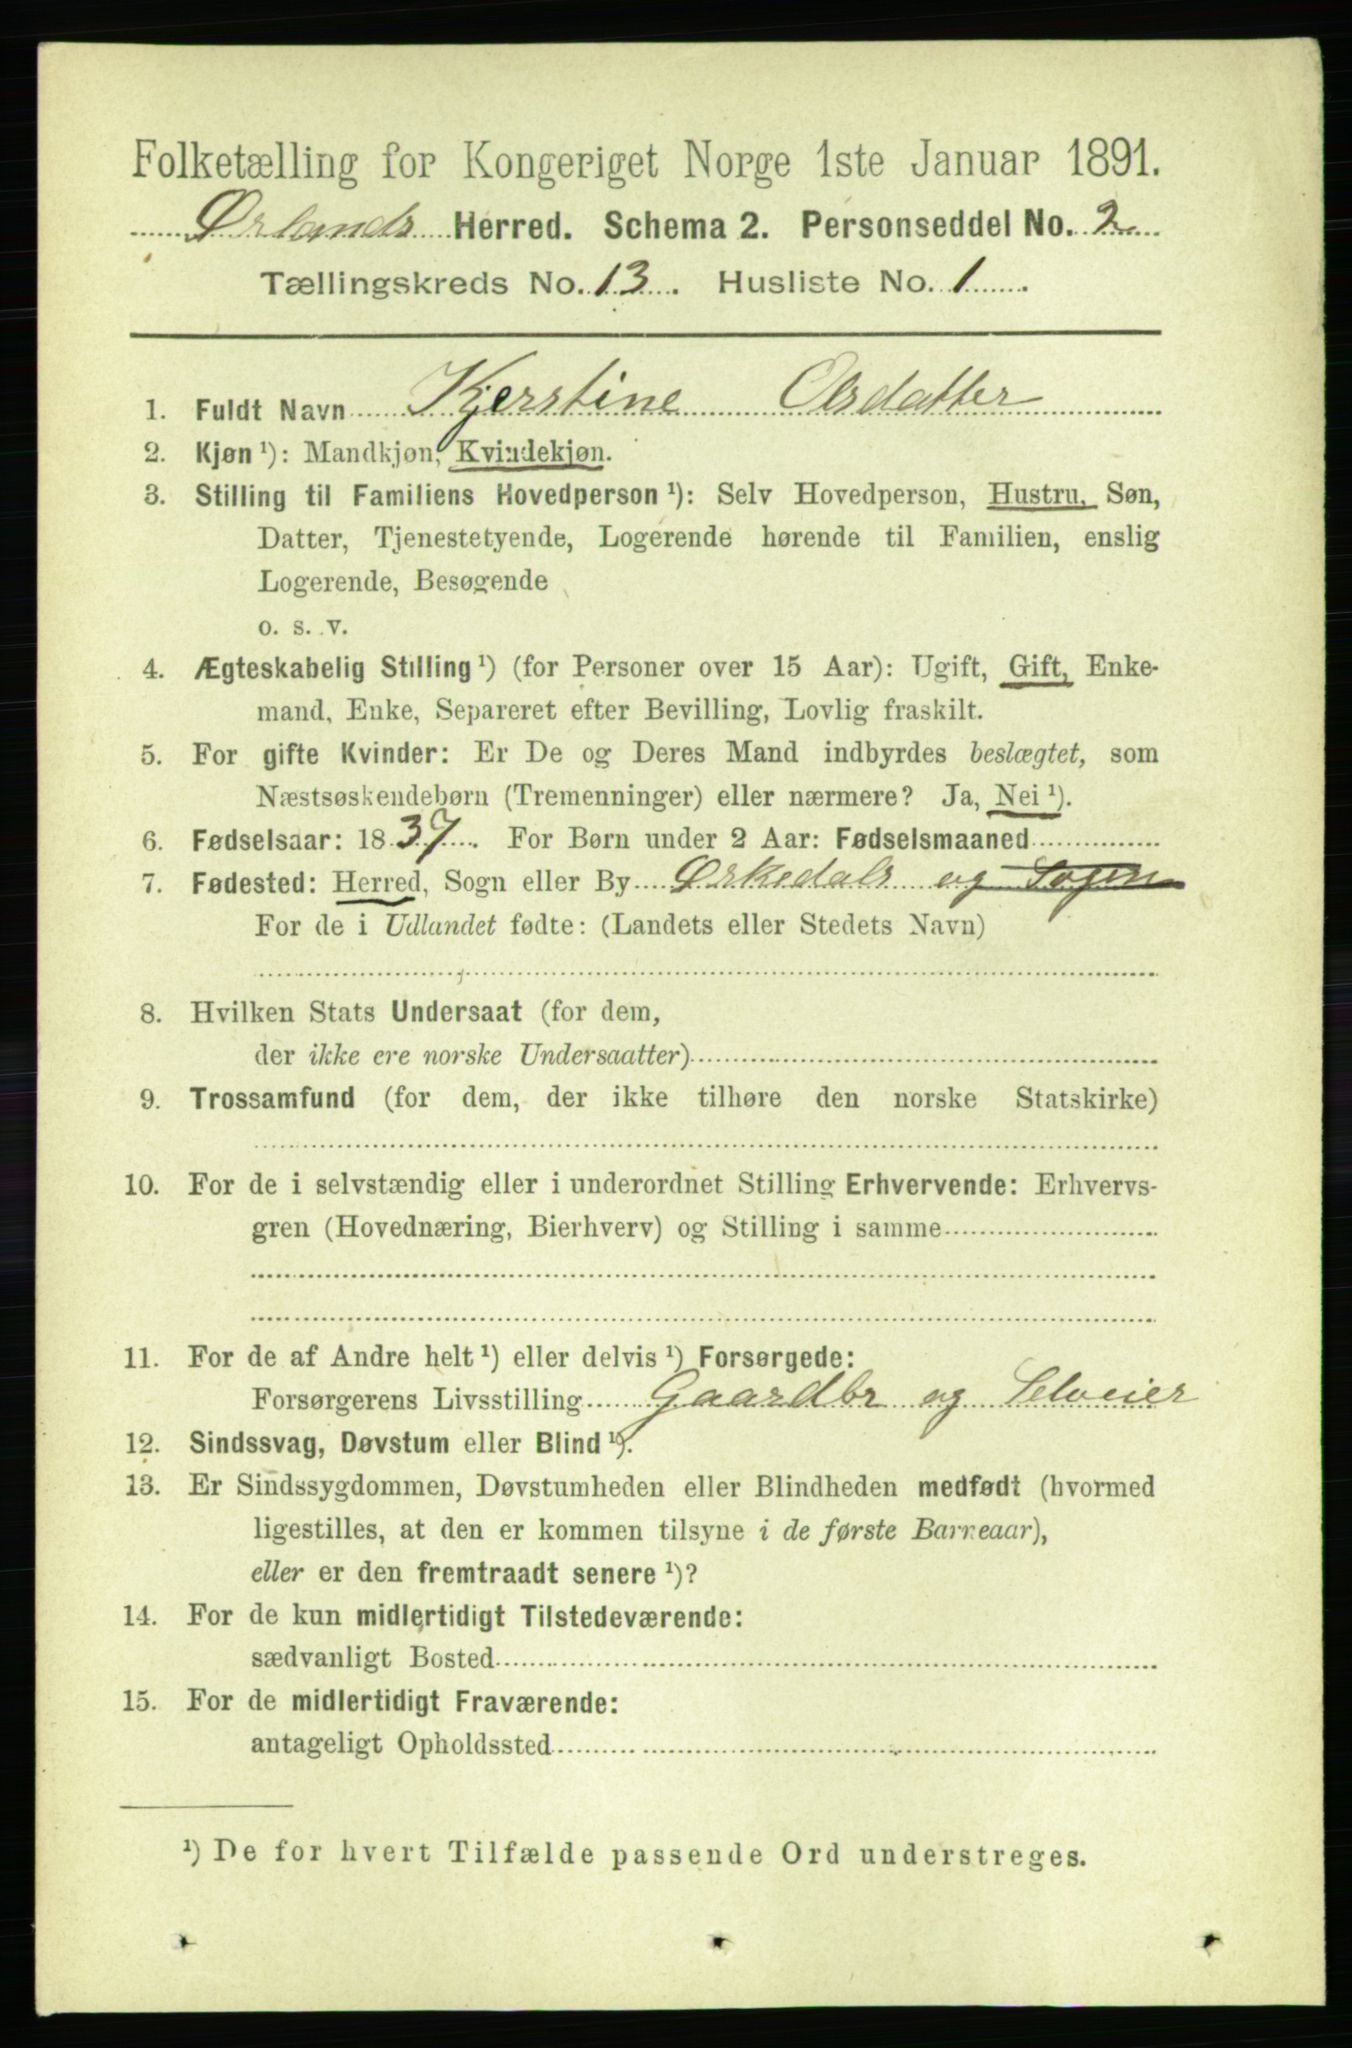 Folketælling for Kongeriget Norge 1ste Januar 1891.
Ørlands Herred. Schema 2. Personseddel No. 2
Tællingskreds No. 13. Husliste No. 1.
1. Fuldt Navn Kjerstine Olsdatter
2. Kjøn ¹): Mandkjøn, Kvindekjøn.
3. Stilling til Familiens Hovedperson ¹): Selv Hovedperson, Hustru, Søn,
Datter, Tjenestetyende, Logerende hørende til Familien, enslig
Logerende, Besøgende
o. s. v.
4. Ægteskabelig Stilling ¹) (for Personer over 15 Aar): Ugift, Gift, Enke-
mand, Enke, Separeret efter Bevilling, Lovlig fraskilt.
5. For gifte Kvinder: Er De og Deres Mand indbyrdes beslægtet, som
Næstsøskendebørn (Tremenninger) eller nærmere? Ja, Nei ¹).
6. Fødselsaar: 1837. For Børn under 2 Aar: Fødselsmaaned
7. Fødested: Herred, Sogn eller By Ørkedals og Sogn
For de i Udlandet fødte: (Landets eller Stedets Navn)
8. Hvilken Stats Undersaat (for dem,
der ikke ere norske Undersaatter)
9. Trossamfund (for dem, der ikke tilhøre den norske Statskirke)
10. For de i selvstændig eller i underordnet Stilling Erhvervende: Erhvervs-
gren (Hovednæring, Bierhverv) og Stilling i samme
11. For de af Andre helt ¹) eller delvis ¹) Forsørgede:
Forsørgerens Livsstilling Gaardbr og Selveier
12. Sindssvag, Døvstum eller Blind ¹).
13. Er Sindssygdommen, Døvstumheden eller Blindheden medfødt (hvormed
ligestilles, at den er kommen tilsyne i de første Barneaar),
eller er den fremtraadt senere ¹)?
14. For de kun midlertidigt Tilstedeværende:
sædvanligt Bosted
15. For de midlertidigt Fraværende:
antageligt Opholdssted
¹) De for hvert Tilfælde passende Ord understreges.